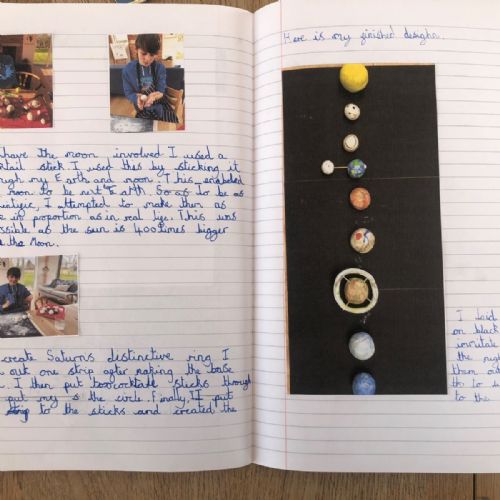 have the moon involved I used a
tail stick. I used this by sticking it
my Earth and moon. This enabled
moon to be next Earth. So as to be as
I attempted to make them as
in proportion as in real life. This was
as the sun is 400 times bigger
the Moon.
create Saturns distinctive ring I
out one strip after making the base
I then put two cocktail sticks through
put my s the circle. Finally, I put
strip to the sticks and created the
Here is my finished design.
I laid
on black
the nig
them ou
to
to the